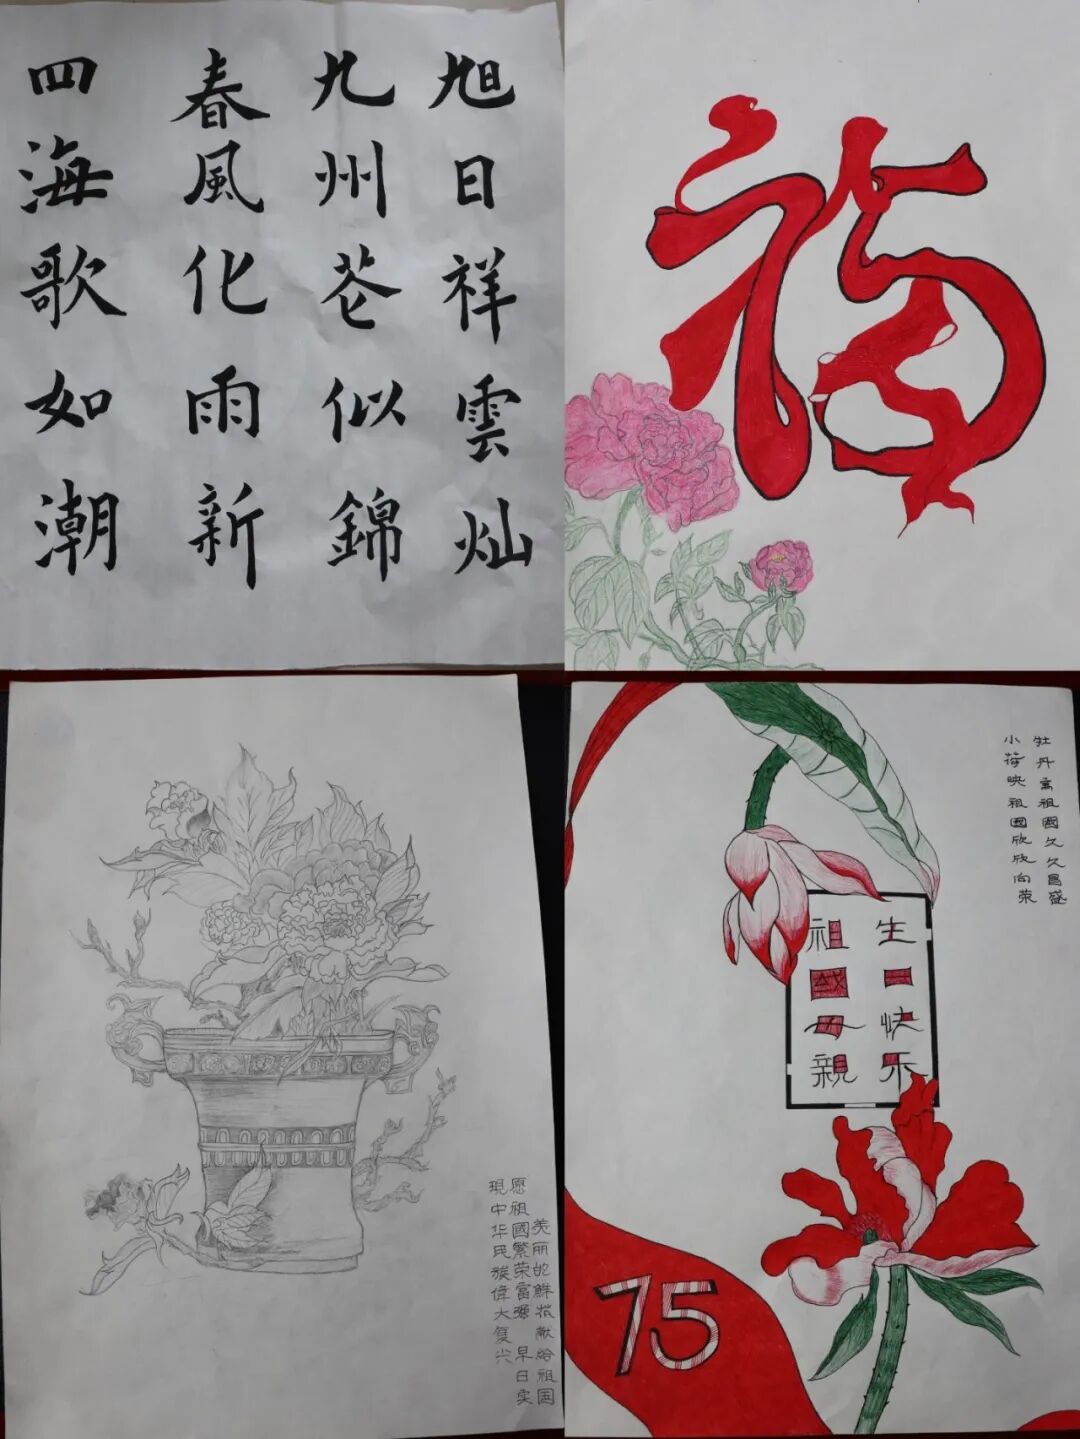 旭日祥雲灿
九州花似錦
春風化雨新
四海歌如潮
福
美丽的鲜花献给祖国
愿祖國繁荣富强 早日实
現中华民族偉大复兴
牡丹寓祖國久久昌盛
小荷映祖國欣欣向荣
祖國母親
生日快乐
75